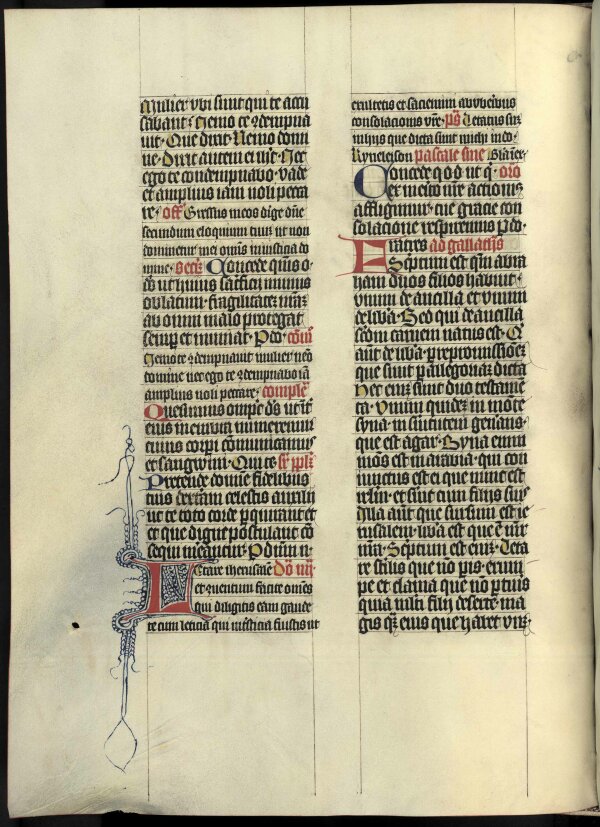 Mulier vbi sunt qui te accu
sabant Nemo te 9dempna
uit Que dixit Nemo domi
ne Dixit autem ei ihs Nec
ego te condempnabo vade
et amplius iam noli pecca
re off Gressus meos dirige dne
secundum eloquium tuum ut non
dominetur mei omnis iniusticia do
mine Secr Concede qs o
ut huius sacrificii munus
oblatum fragilitatem nram
ab omni malo protegat
semper et muniat Per com
Nemo te 9dempnauit mulier nemo
domine nec ego te 9dempnabo iam
amplius noli peccare comple
Quesumus ompe ds ut int
eius membra numeremur
cuius corpi communicamus
et sangwini Qui te sr pplm
Pretende domine fidelibus
tuis dexteram celestis auxilii
ut te toto corde perquirant et
et que digne postulant co
sequi mereantur P dnm n
Letare iherusalem Do iiii
et quentum facite omnes
qui diligitis eam gaude
te cum leticia qui in tristicia fuistis ut
exultetis et saciemini ab vberibus
consolacionis vre ps Letatus sum
in hiis que dicta sunt michi in do
Kyrieleison pascale sine
Concede qs o ds ut q oro
ex merito nre actionis
affligimur tue gracie con
solacione respiremus P do
Fratres ad gallathis
Scriptum est qm abra
ham duos filios habuit
vnum de ancilla et vnum
de liba Sed qui de ancilla
secdm carnem natus est Q
aut de liba per repromissione
que sunt per allegoriam dicta
Hec enim sunt duo testame
ta Vnum quidem in monte
syna in seruitutem generans
que est agar Syna enim
mons est in arabia qui con
iunctus est ei que nunc est
irlm et seruit cum filiis suis
Illa aut que sursum est ie
rusalem liba est que e mr
nra Scriptum est enim Leta
re sterilis que non paris erum
pe et clama que non perturis
quia multi filii deserte ma
gis qm eius que habet virum